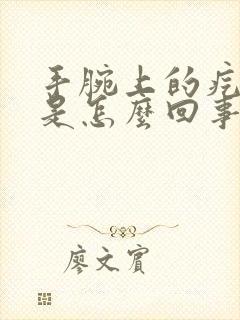 手腕上的疙
是怎麼回事
廖文賓